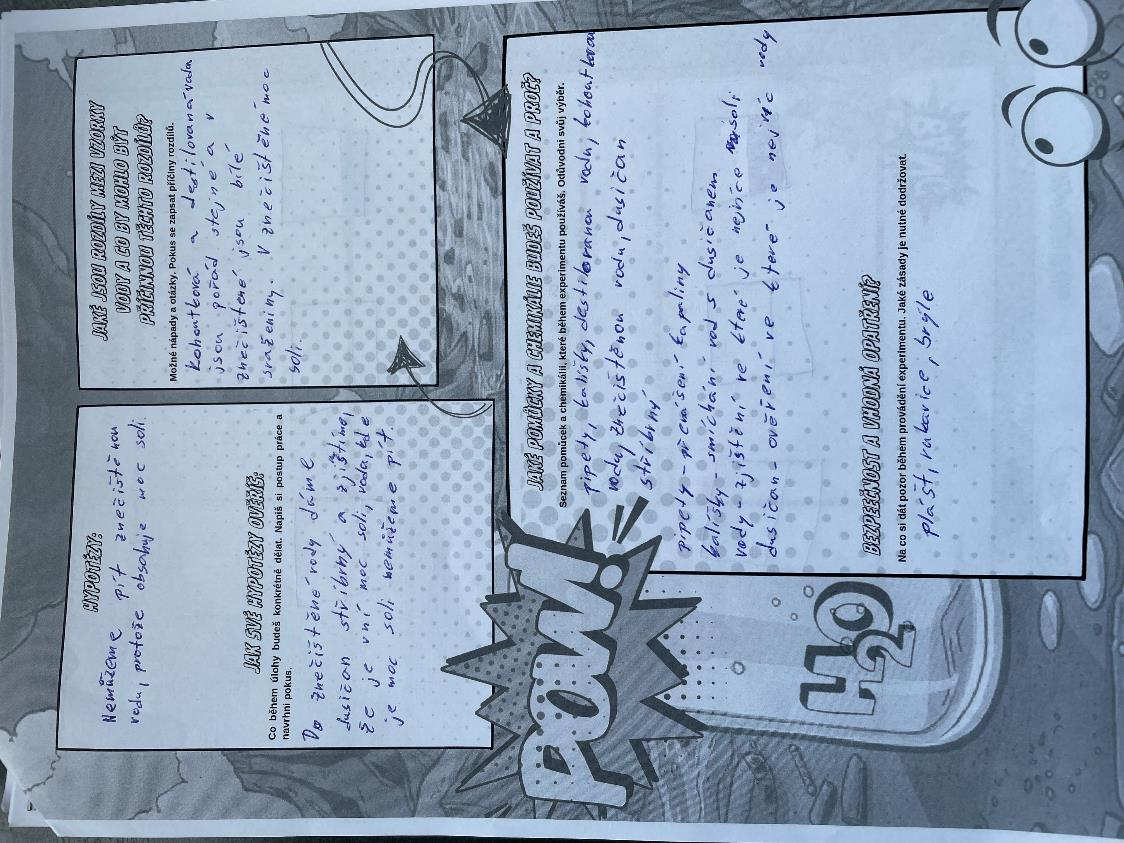 HYPOTÉZY:
Nemůžeme pít znečistěnou
vodu, protože obsahuje moc soli.
JAK SVÉ HYPOTÉZY OVĚŘÍŠ?
Co během úlohy budeš konkrétně dělat. Napiš si postup práce a
navrhni pokus.
Do znečištěné vody dáme
dusičan stříbrný a zjistíme,
že je vní moc soli, voda, kde
je moc soli nemůžeme pít.
JAKÉ JSOU ROZDÍLY MEZI VZORKY
VODY A CO BY MOHLO BÝT
PŘÍČINNOU TĚCHTO ROZDÍLŮ?
Možné nápady a otázky. Pokus se zapsat příčiny rozdílů.
kohoutková a destilovaná voda
jsou pořád stejné a v
znečištené jsou bílé
sraženiny. V znečištěné moc
soli.
JAKÉ POMŮCKY A CHEMIKÁLIE BUDEŠ POUŽÍVAT A PROČ?
Seznam pomůcek a chemikálií, které během experimentu používáš, Odůvodni svůj výběr.
pipety, kalíšky, destilovanou vodu, kohoutkovou
vodu, znečistěnou vodu, dusičan
stříbrný
pipety - přemísení kapaliny
kalíšky - smíchání vod s dusičanem
vody - zjištění ve které je nejvíce soli
dusičan - ověření ve které je nejvíc vody
BEZPEEČNOST A VHODNÁ OPATŘENÍ?
Na co si dát pozor během provádění experimentu. Jaké zásady je nutné dodržovat.
plášť, rukavice, brýle
POW!
H2O